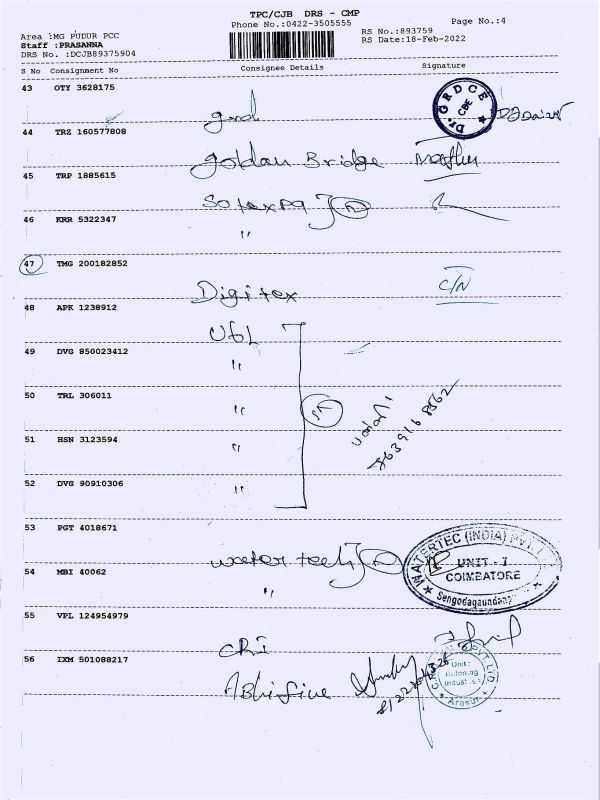 TPC/CJB DRS - CMP
Phone No.:0422-3505555
Page No.:4
Area :MG PUDUR PCC
RS No.:893759
Staff :PRASANNA
RS Date:18-Feb-2022
DRS No. :DCJB89375904
S No Consignment No Consignee Details Signature
43 OTY 3628175
Dr. GRDCE
CBE
44 TRZ 160577808
goldan Bridge
45 TRP 1885615
46 KRR 5322347
"
47 TMG 200182852
Digitex C/N
48 APK 1238912
UGL
49 DVG 850023412
"
50 TRL 306011
"
51 HSN 3123594
"
52 DVG 90910306
"
53 PGT 4018671
water tech
WATERTEC (INDIA) PVT. L
UNIT - I
COIMBATORE
Sengodagaundan
54 MBI 40062
"
55 VPL 124954979
CRI
56 IXM 501088217
Unit :
Arasur